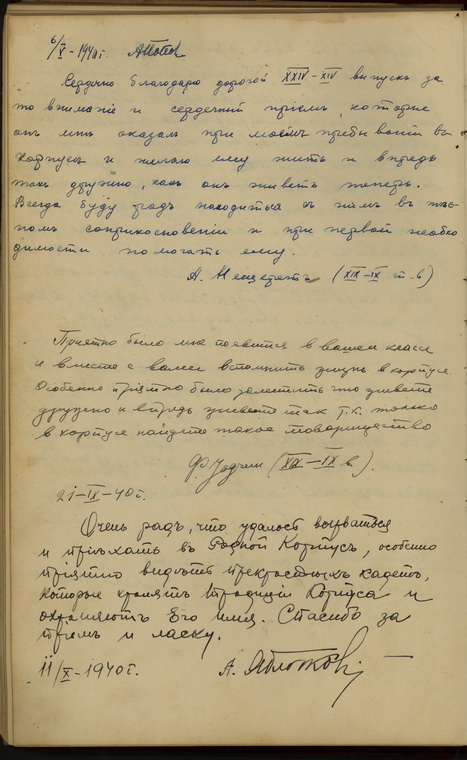 6/X - 1940 г.
Сердечно благодарю дорогой XXIV-XIV выпускъ за
то вниманіе и сердечный пріемъ, которые
онъ мнѣ оказалъ при моемъ пребываніи въ
корпусѣ и желаю ему жить и впредь
такъ дружно, какъ онъ живетъ теперь.
Всегда буду радъ находиться съ нимъ въ
соприкосновеніи и при первой необхо
димости помогать ему.
А. (XIX-IX в)
Приятно было мне появится в вашем классе
и вместе с вами вспомнить жизнь в корпусе.
Особенно приятно было заметить что живете
дружно и впредь живите так т.к. только
в корпусе найдете такое товарищество
(XIX-IX в).
21-IX-40 г.
Очень радъ, что удалось вырваться
и пріѣхать въ Родной Корпусъ, особенно
пріятно видѣть прекрасныхъ кадетъ,
которые хранятъ традиціи Корпуса и
охраняютъ Его имя. Спасибо за
пріемъ и ласку.
11/X - 1940 г. А. Яблоков